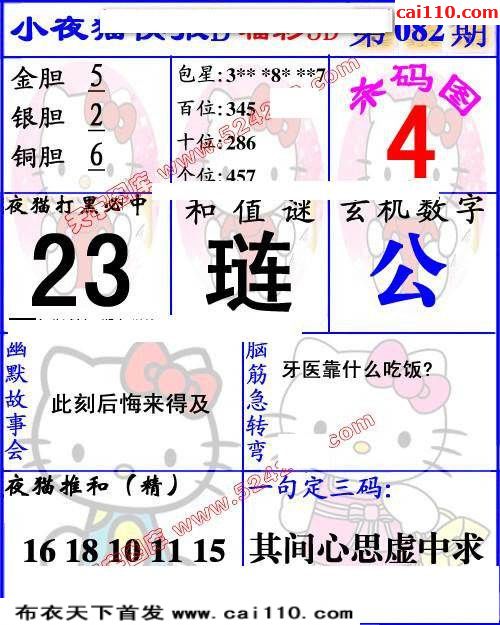 cai110.com
小夜猫快报D 福彩3D 第082期
金胆 5
银胆 2
铜胆 6
包星:3** *8* **7
百位:345
十位:286
个位:457
杀码图
4
夜猫打黑必中
23
和值谜
琏
玄机数字
公
幽默故事会
此刻后悔来得及
脑筋急转弯
牙医靠什么吃饭?
夜猫推和(精)
16 18 10 11 15
一句定三码:
其间心思虚中求
布衣天下首发 www.cai110.com